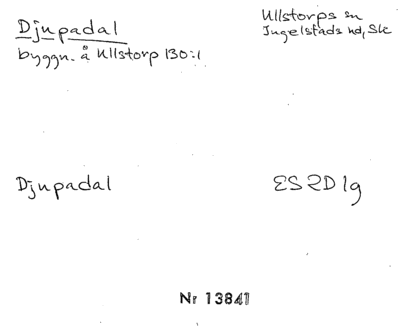 Djupadal
byggn. å Ullstorp 130:1
Ullstorps sn
Ingelstads hd, Sk
Djupadal
ES2D1g
Nr 13841